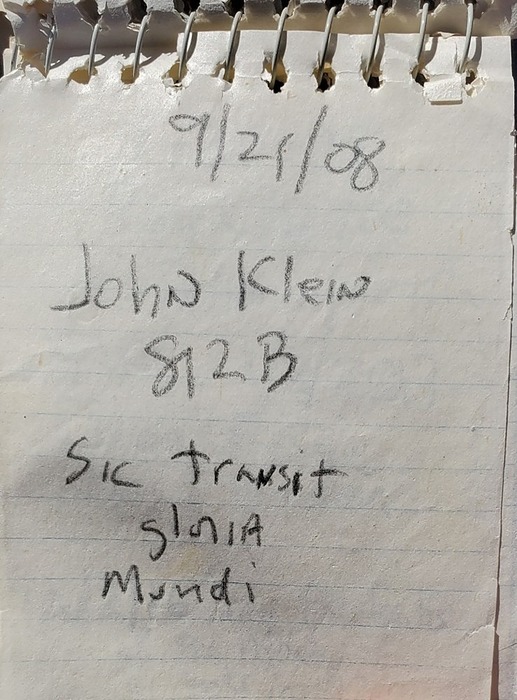 9/25/08
John Klein
812 B
Sic transit
gloria
Mundi